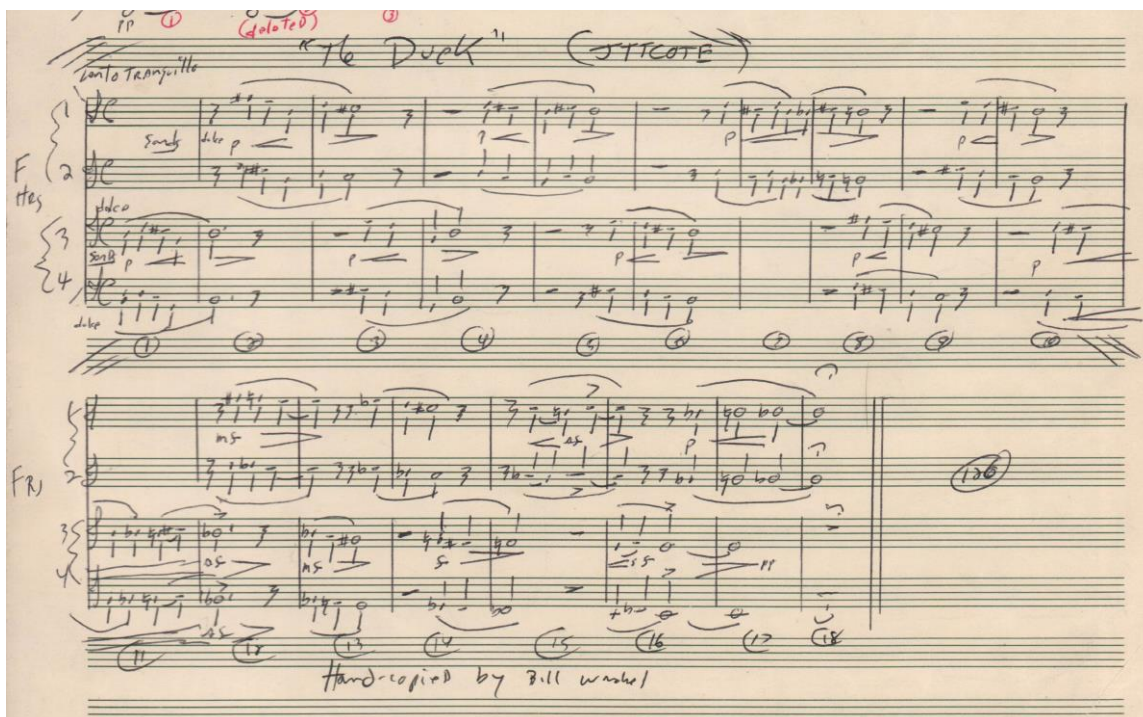 PP ① (deleted) ③
"The Duck" (JTTCOTE)
Lento Tranquillo
1
Sords dolce p p p p
F 2
Hrs
dolce
3
Sords p p p p p
4
dolce
① ② ③ ④ ⑤ ⑥ ⑦ ⑧ ⑨ ⑩
1
mf p
2 126
3
mf pp
4
11 12 13 14 15 16 17 18
Hand-copied by Bill Wrobel